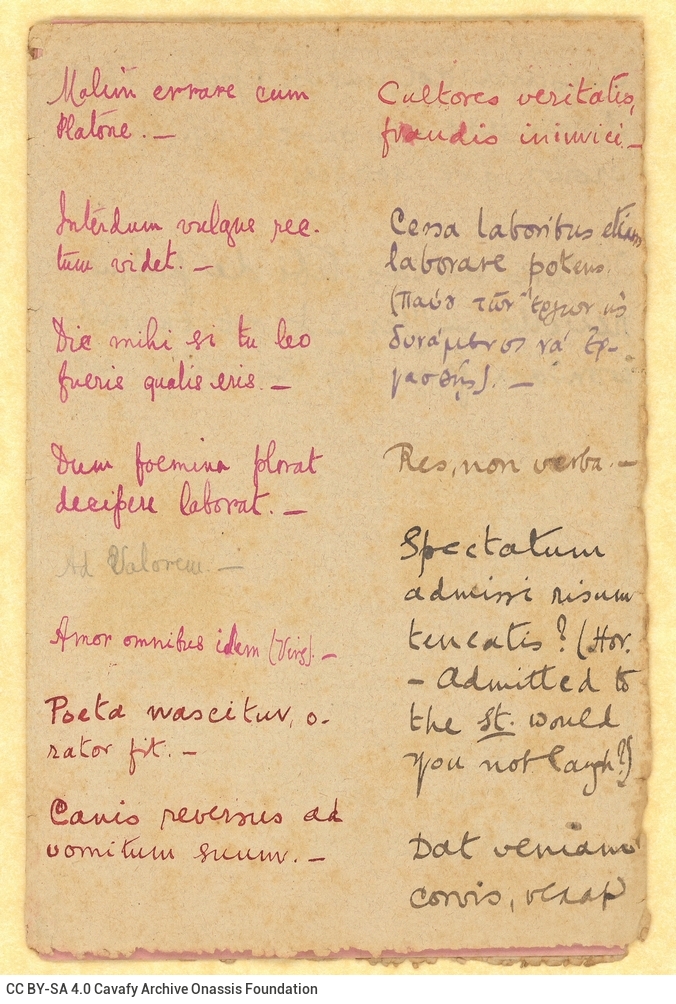 Malim errare cum
Platone. —
Interdum vulgus rec-
tum videt. —
Dic mihi si tu leo
fueris qualis eris. —
Dum foemina plorat
decipere laborat. —
Ad Valorem. —
Amor omnibus idem (Virg). —
Poeta nascitur, o-
rator fit. —
Canis reversus ad
vomitum suum. —
Cultores veritatis,
fraudis inimici. —
Cessa laboribus etiam
laborare potens.
(Παύου τῶν ἔργων
δυνάμενος νά ἐρ-
γασθῇς). —
Res, non verba. —
Spectatum
admissi risum
teneatis? (Hor.
— Admitted to
the St. would
you not laugh?)
Dat veniam
corvis, vexat
CC BY-SA 4.0 Cavafy Archive Onassis Foundation